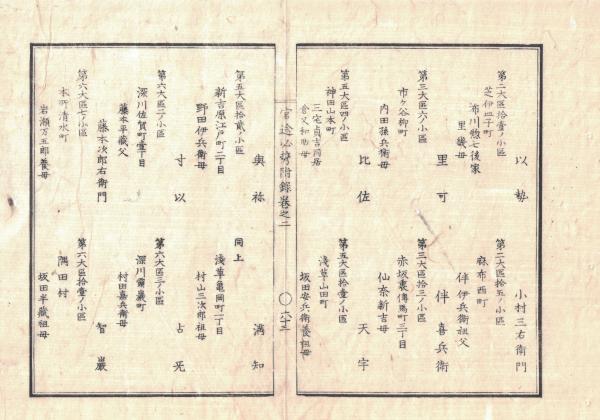 小村三右衛門
第二大區拾壹ノ小區
芝伊皿子町
市川惣七後家
里幾母
以勢
第二大區拾五ノ小區
麻布西町
伴伊兵衛祖父
伴喜兵衛
第三大區六ノ小區
市ケ谷柳町
内田孫兵衛母
里可
第三大區拾三ノ小區
赤坂裏傳馬町三丁目
仙奈新吉母
天宇
第五大區四ノ小區
神田山本町
三宅貞吉同居
倉又和助母
比佐
第五大區拾壹ノ小區
淺草山田町
坂田安兵衛養祖母
官途必携附録巻之二
〇六十三
滿知
第五大區拾貳ノ小區
新吉原江戸町二丁目
野田伊兵衛母
與祢
同上
淺草亀岡町一丁目
村山三次郎祖母
占旡
第六大區二ノ小區
深川佐賀町壹丁目
藤本平藏父
寸以
藤本次郎右衛門
第六大區三ノ小區
村田嘉兵衛母
智巌
第六大區七ノ小區
本所清水町
岩瀬万五郎養母
第六大區拾壹ノ小區
隅田村
坂田半藏祖母